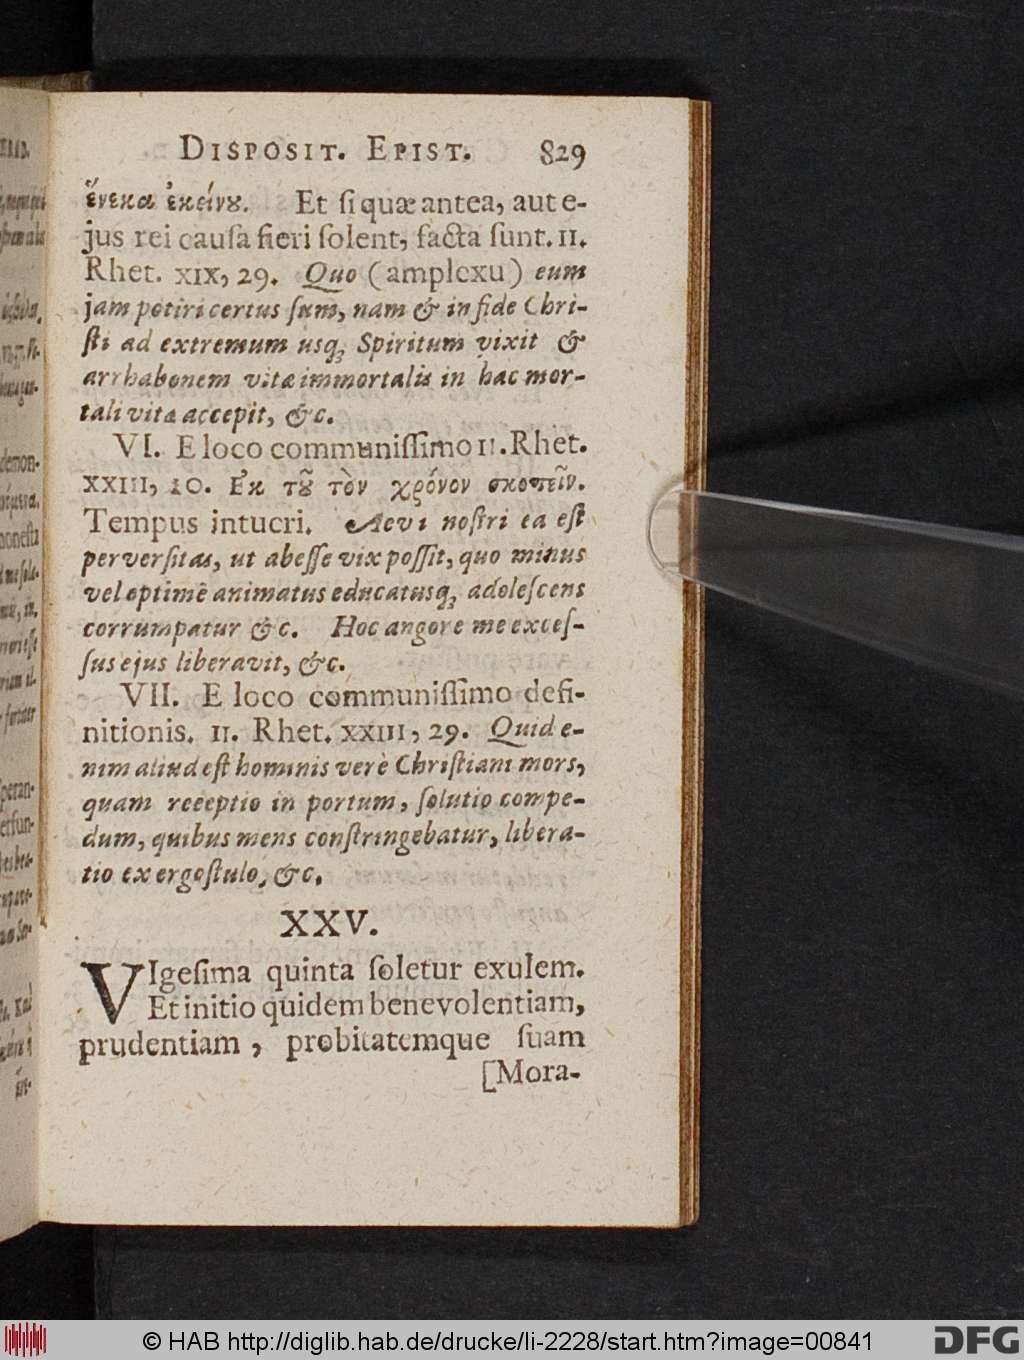 DISPOSIT. EPIST. 829
ἕνεκα ἐκείνȣ. Et ſi quæ antea, aut e-
jus rei cauſa fieri ſolent, facta ſunt. II.
Rhet. XIX, 29. Quo (amplexu) eum
jam potiri certus ſum, nam & in fide Chri-
ſti ad extremum usq; Spiritum vixit &
arrhabonem vitæ immortalis in hac mor-
tali vita accepit, &c.
VI. E loco communiſſimo II. Rhet.
XXIII, 10. Ἐκ τȣ̃ τὸν χρόνον σκοπεῖν.
Tempus intueri. Aevi noſtri ea eſt
perverſitas, ut abeſſe vix poſſit, quo minus
vel optimè animatus educatusq; adoleſcens
corrumpatur &c. Hoc angore me exceſ-
ſus ejus liberavit, &c.
VII. E loco communiſſimo defi-
nitionis. II. Rhet. XXIII, 29. Quid e-
nim aliud eſt hominis verè Chriſtiani mors,
quam reeeptio in portum, ſolutio compe-
dum, quibus mens conſtringebatur, libera-
tio ex ergoſtulo, &c.
XXV.
VIgeſima quinta ſoletur exulem.
Et initio quidem benevolentiam,
prudentiam, probitatemque ſuam
[Mora-
© HAB http://diglib.hab.de/drucke/li-2228/start.htm?image=00841
DFG